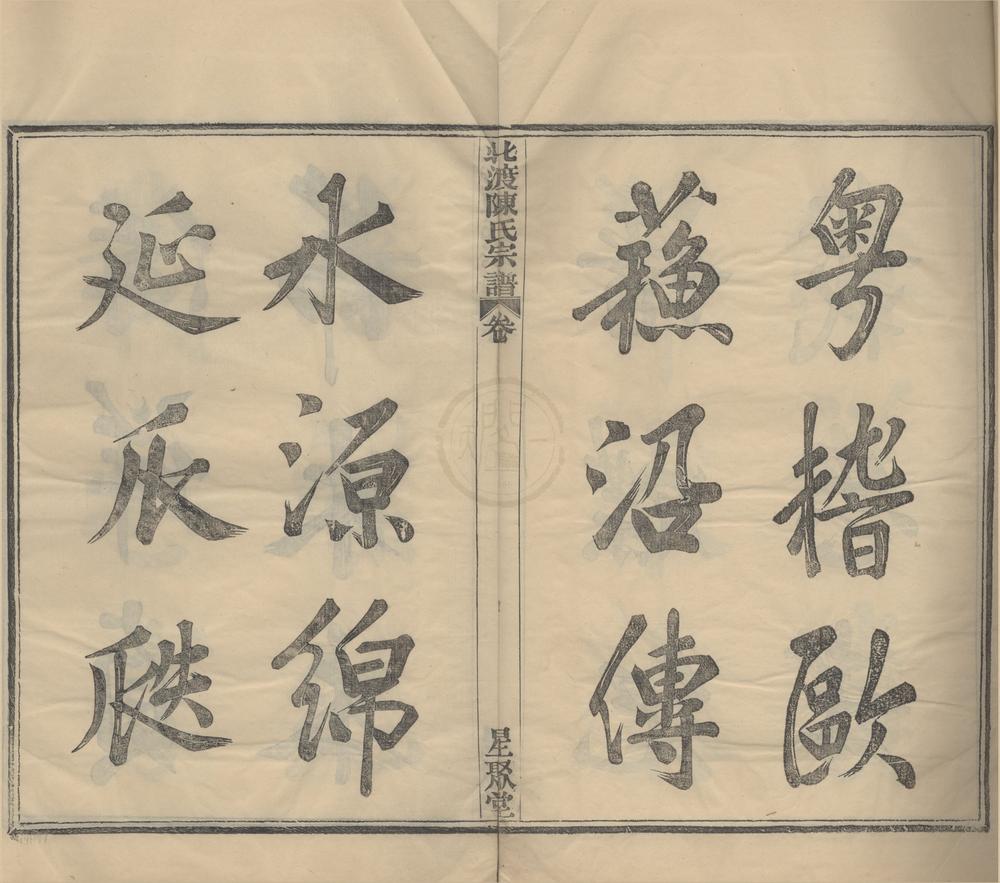 粤稽歐
蘓沿傳
北渡陳氏宗譜 卷
星聚堂
水源綿
延𠂢瓞